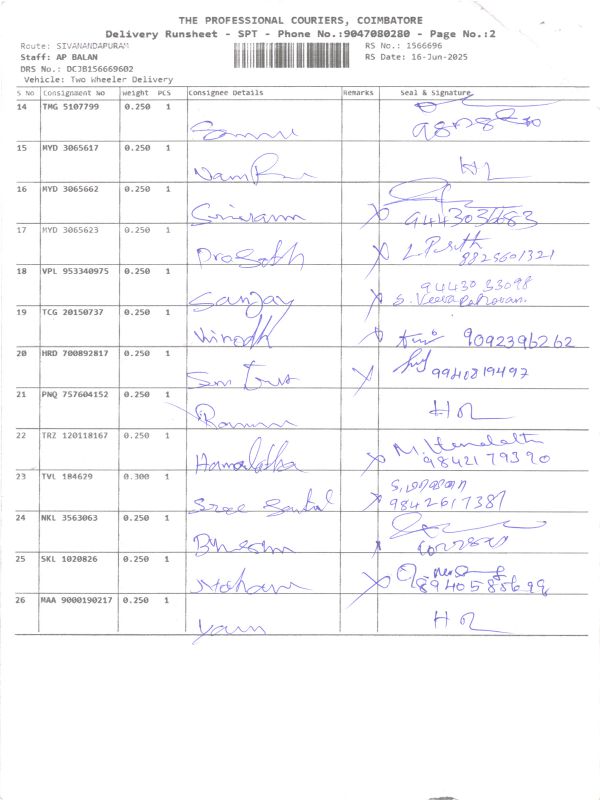 THE PROFESSIONAL COURIERS, COIMBATORE
Delivery Runsheet - SPT - Phone No.:9047080280 - Page No.:2
Route: SIVANANDAPURAM
RS No.: 1566696
Staff: AP BALAN
RS Date: 16-Jun-2025
DRS No.: DCJB156669602
Vehicle: Two Wheeler Delivery
S No Consignment No Weight PCS Consignee Details Remarks Seal & Signature
14 TMG 5107799 0.250 1
15 MYD 3065617 0.250 1
H
16 MYD 3065662 0.250 1
Sriram
17 MYD 3065623 0.250 1
Prasath 8825601321
18 VPL 953340975 0.250 1
94430 33098
Sanjay
19 TCG 20150737 0.250 1
Vinodh 9092396262
20 HRD 700892817 0.250 1
9940819497
21 PNQ 757604152 0.250 1
H
22 TRZ 120118167 0.250 1
Hamalatha M. Hemalatha
9842179390
23 TVL 184629 0.300 1
Sree 9842617387
24 NKL 3563063 0.250 1
25 SKL 1020826 0.250 1
Mohan
26 MAA 9000190217 0.250 1
H